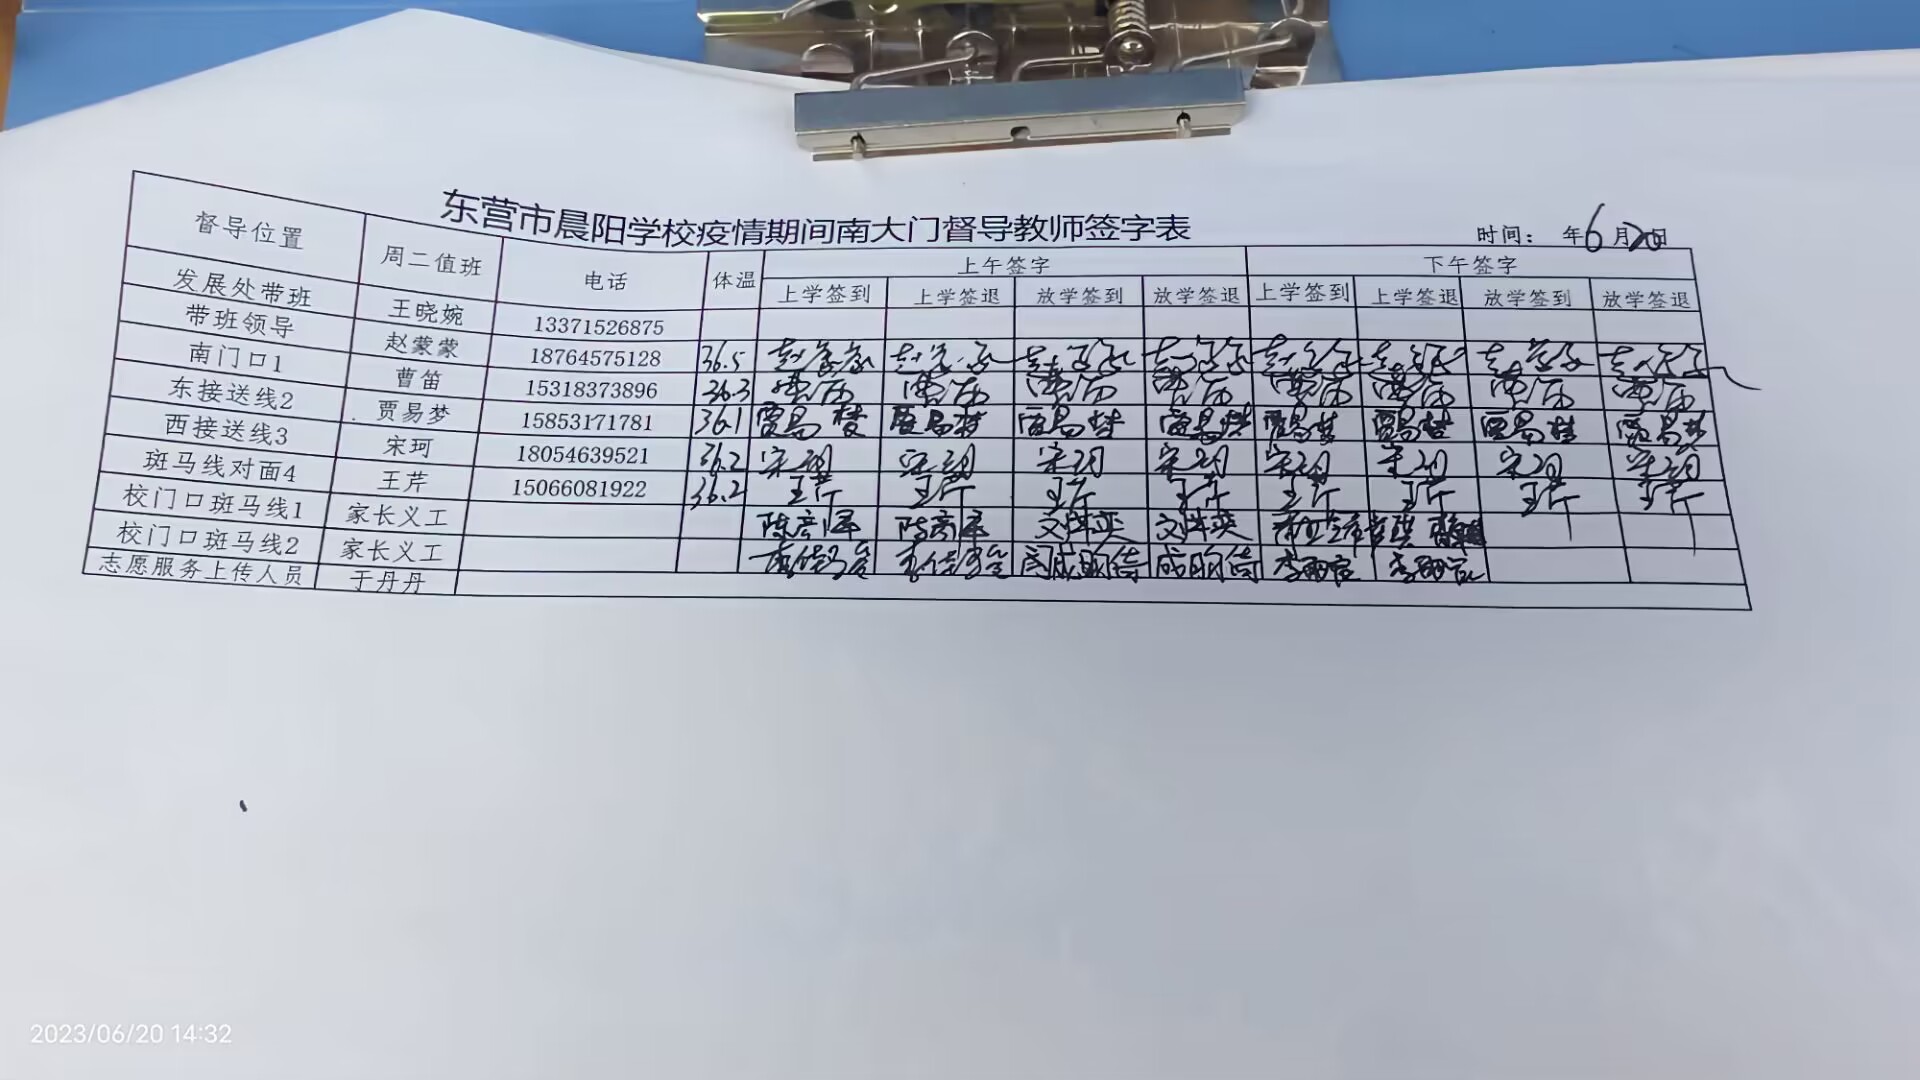 东营市晨阳学校疫情期间南大门督导教师签字表
时间： 年6月20日
督导位置 周二值班 电话 体温 上午签字 下午签字
上学签到 上学签退 放学签到 放学签退 上学签到 上学签退 放学签到 放学签退
发展处带班 王晓婉 13371526875
带班领导 赵蒙蒙 18764575128 36.5
南门口1 曹笛 15318373896 36.3 曹笛 曹笛 曹笛 曹笛 曹笛 曹笛 曹笛 曹笛
东接送线2 贾易梦 15853171781 36.1 贾易梦 贾易梦 贾易梦 贾易梦 贾易梦 贾易梦 贾易梦 贾易梦
西接送线3 宋珂 18054639521 36.2 宋珂 宋珂 宋珂 宋珂 宋珂 宋珂 宋珂 宋珂
斑马线对面4 王芹 15066081922 36.2 王芹 王芹 王芹 王芹 王芹 王芹 王芹 王芹
校门口斑马线1 家长义工
校门口斑马线2 家长义工
志愿服务上传人员 于丹丹
2023/06/20 14:32